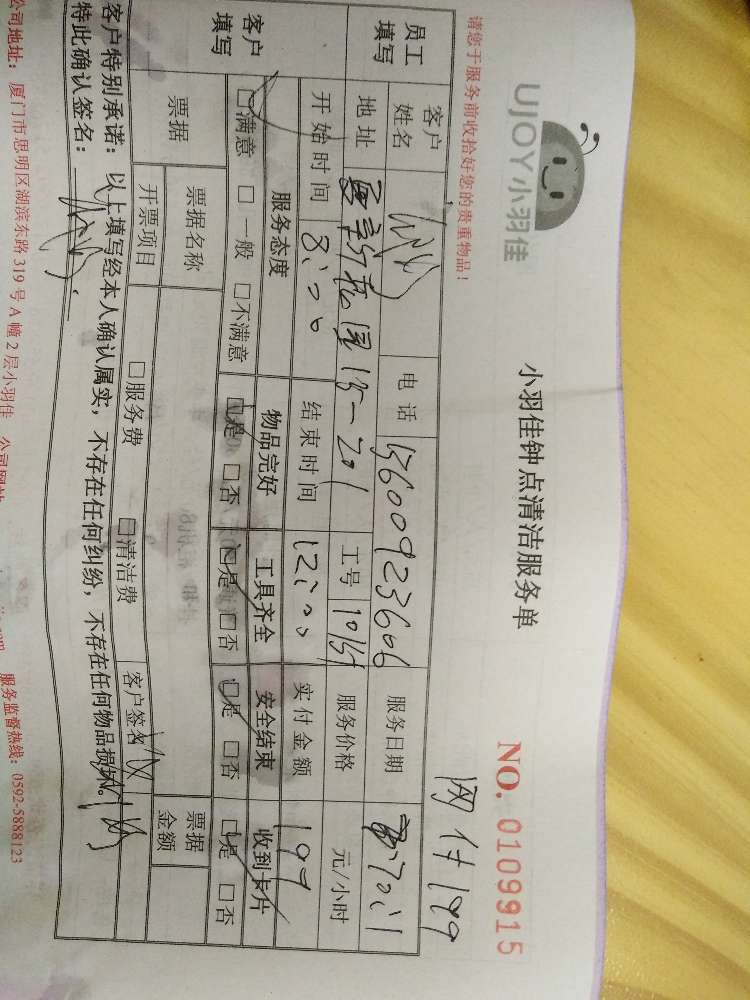 UJOY小羽佳
小羽佳钟点清洁服务单
NO. 0109915
请您于服务前收拾好您的贵重物品！
网付199
员工填写 客户姓名 电话 13600923606 服务日期
地址 15-201 工号 服务价格 元/小时
开始时间 8:00 结束时间 12:00 实付金额 199
客户填写 服务态度 物品完好 工具齐全 安全结束 收到卡片
□满意 □一般 □不满意 □是 □否 □是 □否 □是 □否 □是 □否
票据 票据名称 票据金额
开票项目 □服务费 □清洁费 客户签名
客户特别承诺：以上填写经本人确认属实，不存在任何纠纷，不存在任何物品损坏。
特此确认签名：
公司地址：厦门市思明区湖滨东路319号A幢2层小羽佳 服务监督热线：0592-5888123